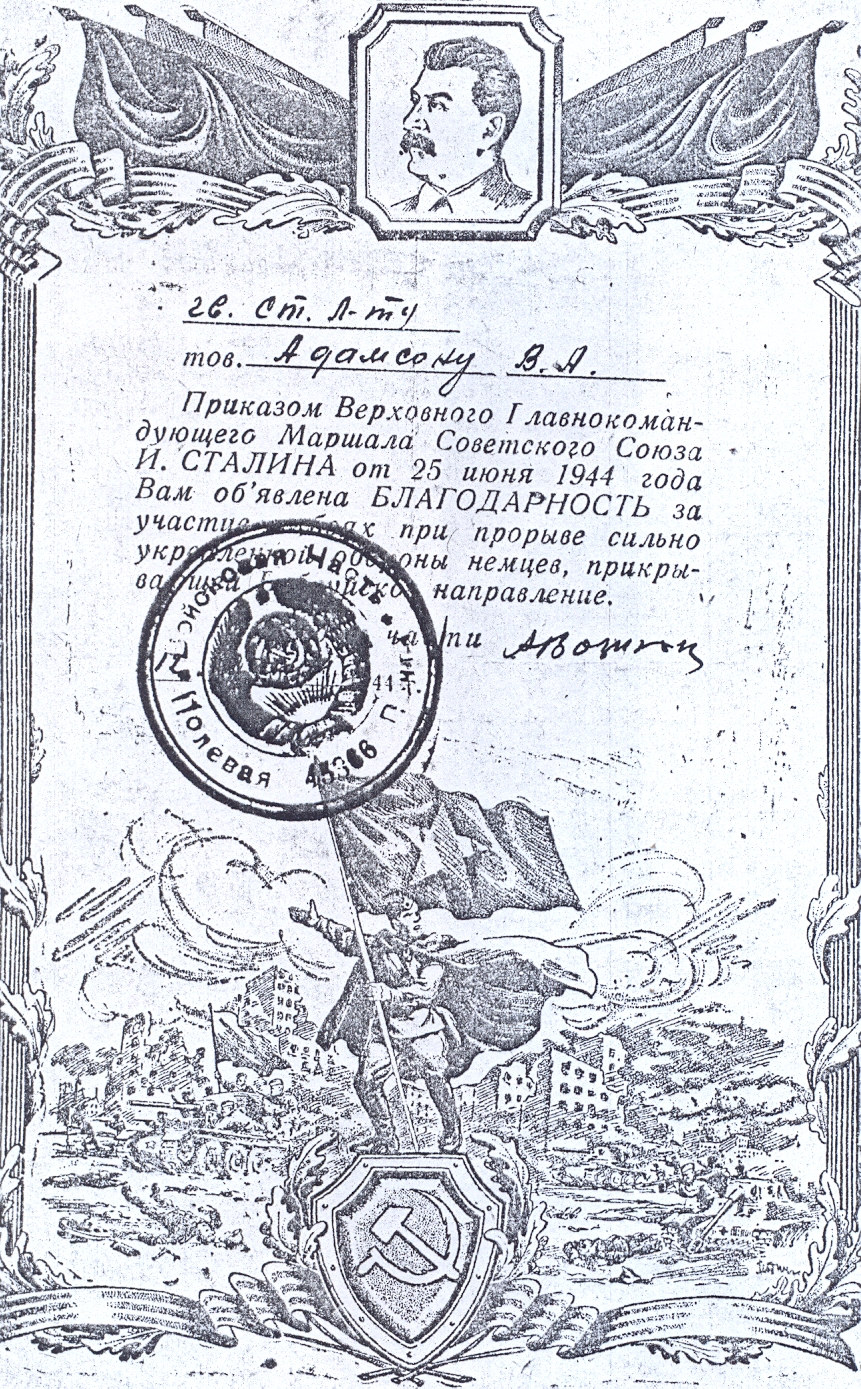 гв. ст. л-ту
тов. Адамсону В. А.
Приказом Верховного Главнокоман-
дующего Маршала Советского Союза
И. СТАЛИНА от 25 июня 1944 года
Вам об'явлена БЛАГОДАРНОСТЬ за
участие в боях при прорыве сильно
укрепленной обороны немцев, прикры-
направление.
44
Войсковая Часть
Полевая